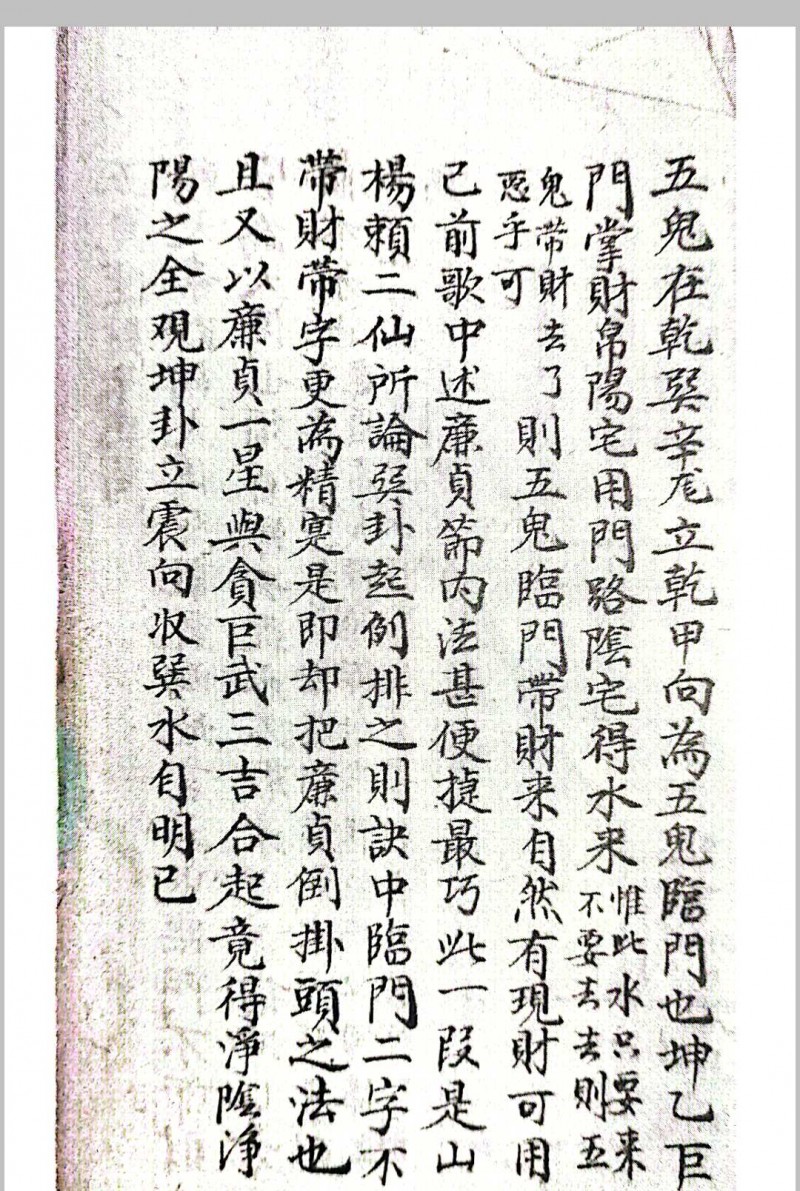 五鬼在乾巽辛尨立乾甲向為五鬼臨門也坤乙巨
門掌財帛陽宅用門路陰宅得水来惟此水只要来
不要去去則五
鬼带財去了
惡乎可
則五鬼臨門帶財来自然有現財可用
已前歌中述廉貞節内法甚便捷最巧此一段是山
楊賴二仙所論巽卦起例排之則訣中臨門二字不
帶財帶字更為精寔是即却把廉貞倒掛頭之法也
且又以廉貞一星與貪巨武三吉合起竟得淨陰淨
陽之全观坤卦立震向收巽水自明已